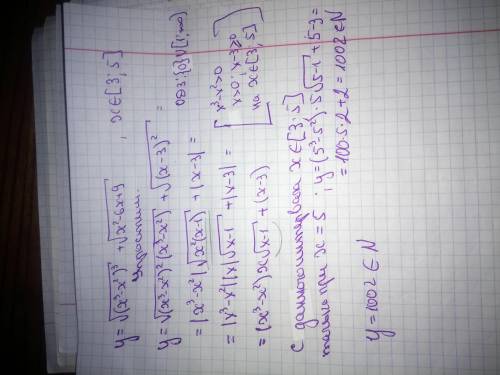 y = √(x³-x²)³ + √x²-6x+9 , x∈[3;5]
Упростим.
y = √(x³-x²)²(x³-x²) + √(x-3)² = ОДЗ: {0}∪[1;+∞)
= |x³-x²|√x²(x-1) + |x-3| =
= |x³-x²||x|√x-1 + |x-3| = [x³-x²>0 x>0; x-3≥0 на x∈[3;5]]
= (x³-x²)x√x-1 + (x-3)
С данного интервала x∈[3;5]
только при x = 5 ; y = (5³-5²)·5√5-1 + (5-3) =
= 100·5·2+2 = 1002 ∈ N
y = 1002 ∈ N